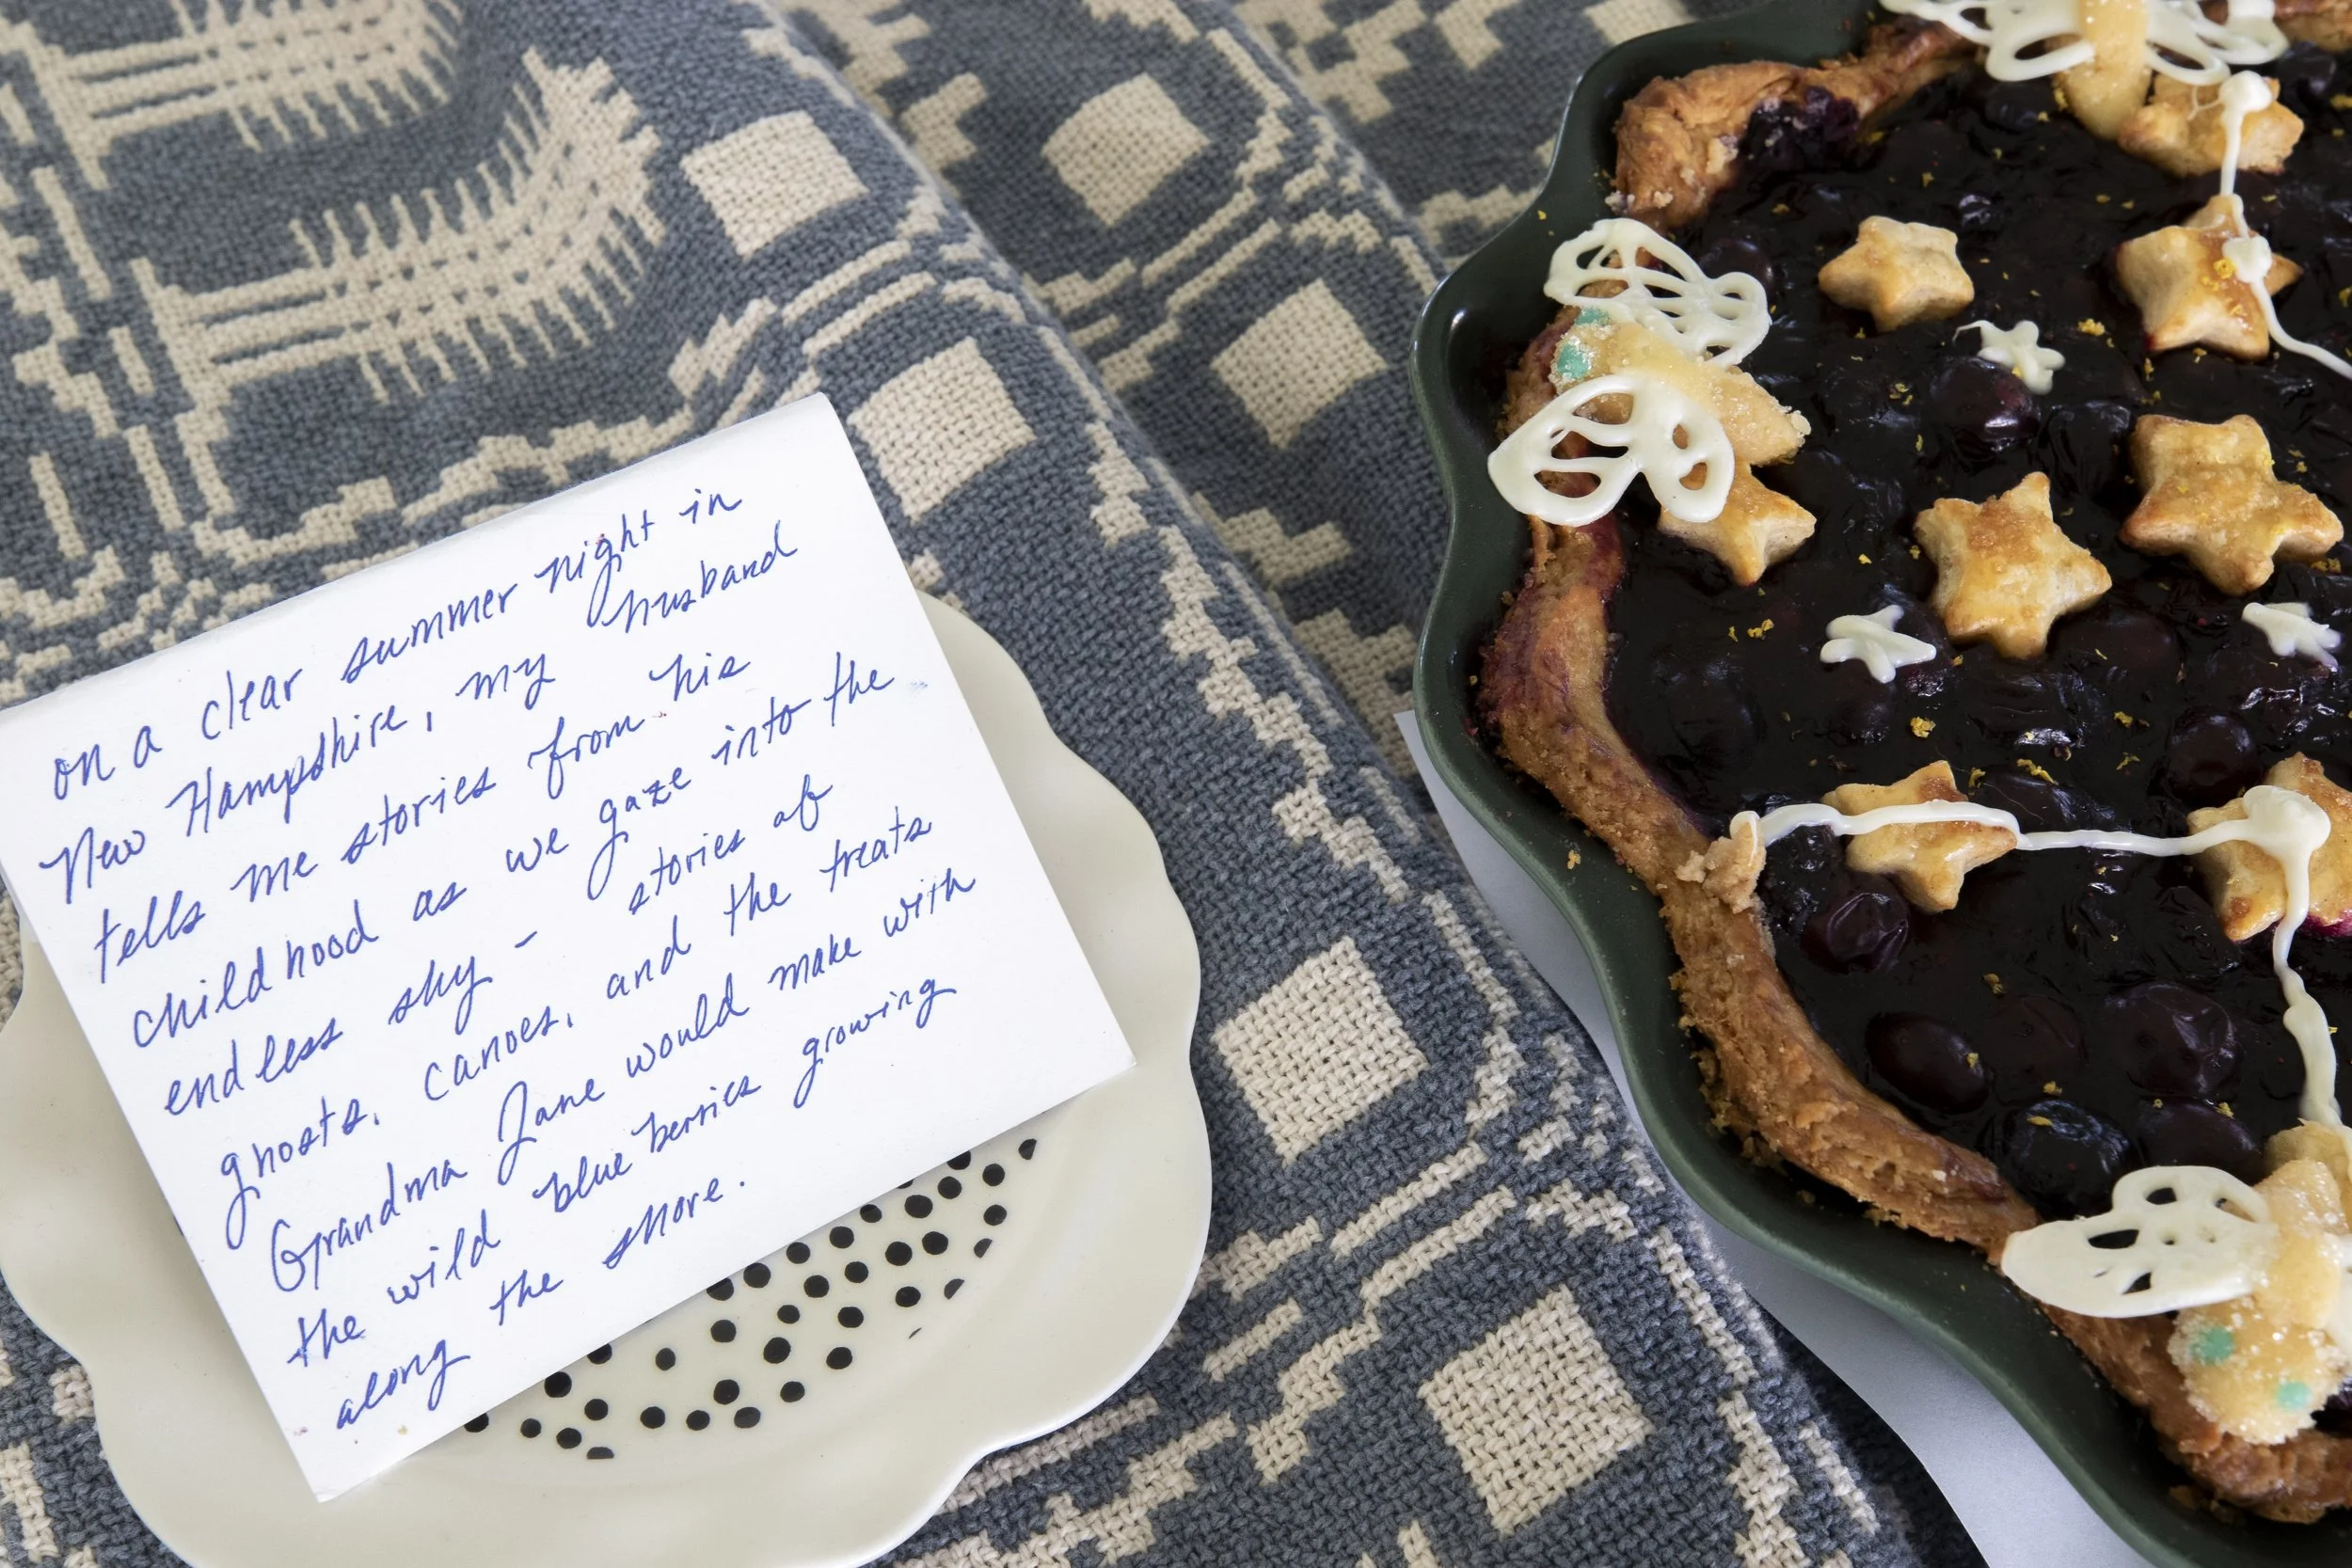 on a clear summer night in
New Hampshire, my husband
tells me stories from his
childhood as we gaze into the
endless sky - stories of
ghosts, canoes, and the treats
Grandma Jane would make with
the wild blueberries growing
along the shore.